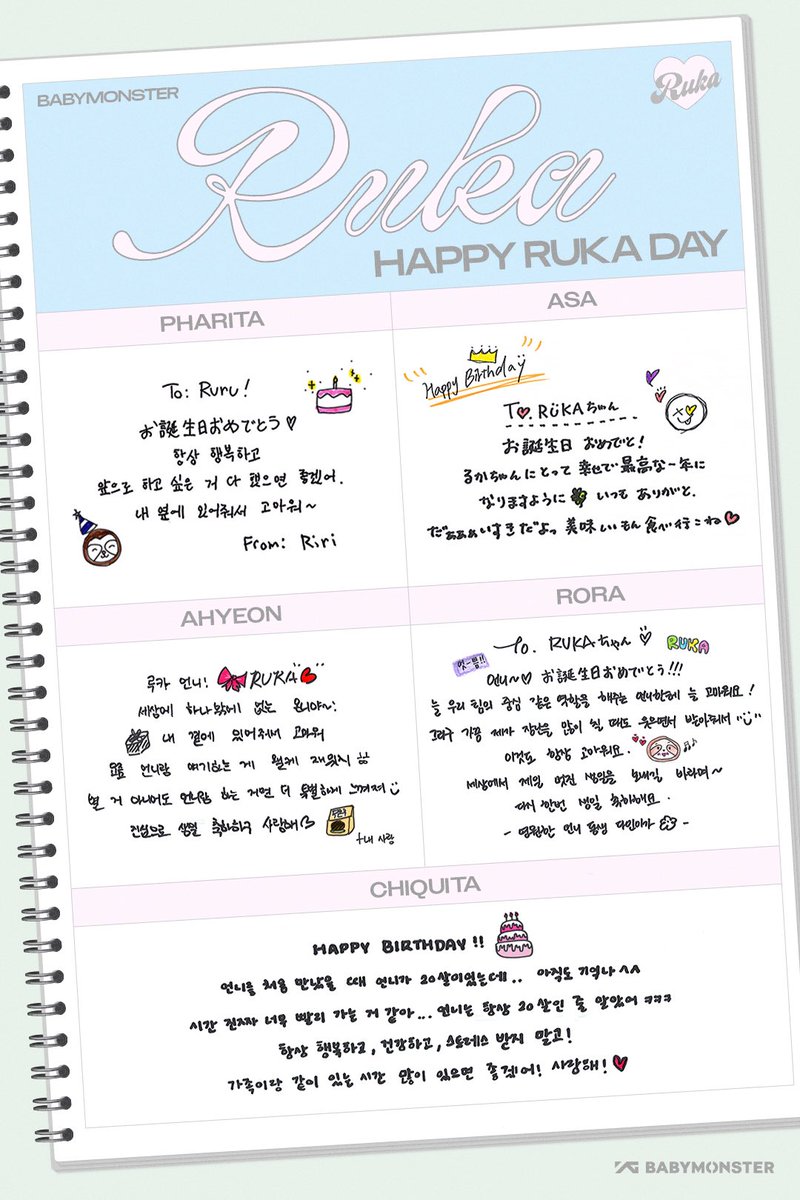 BABYMONSTER
Ruka
Ruka
HAPPY RUKA DAY
PHARITA
To: Ruru!
お誕生日おめでとう♡
항상 행복하고
앞으로 하고 싶은 거 다 했으면 좋겠어.
내 옆에 있어줘서 고마워~
From: Riri
ASA
Happy Birthday
To. RUKAちゃん
お誕生日 おめでと!
るかちゃんにとって 幸せで最高な一年に
なりますように いつも ありがと.
だぁぁぁいすきだよっ 美味しいもん食べ行こね
AHYEON
루카 언니! RUKA
세상에 하나밖에 없는 언니야~!
내 곁에 있어주셔서 고마워
요즘 언니랑 얘기하는 게 왤케 재밌지
별 거 아니어도 언니랑 하는 거면 더 특별하게 느껴져
진심으로 생일 축하하구 사랑해♡
+내 사랑
RORA
To. RUKAちゃん♡
RUKA
언니~♡ お誕生日おめでとう!!!
늘 우리 팀의 중심 같은 역할을 해주는 언니한테 늘 고마워요!
그리구 가끔 제가 장난을 많이 칠 때도 웃으면서 받아줘서
이것도 항상 고마워요.
세상에서 제일 멋진 생일을 보내길 바라며~
다시 한번 생일 축하해요
- 영원한 언니 동생 다인이가 -
CHIQUITA
HAPPY BIRTHDAY!!
언니를 처음 만났을 때 언니가 20살이었는데.. 아직도 기억나^^
시간 진짜 너무 빨리 가는 거 같아... 언니는 항상 20살인 줄 알았어 ㅋㅋㅋ
항상 행복하고, 건강하고, 스트레스 받지 말고!
가족이랑 같이 있는 시간 많이 있으면 좋겠어! 사랑해!
YG BABYMONSTER